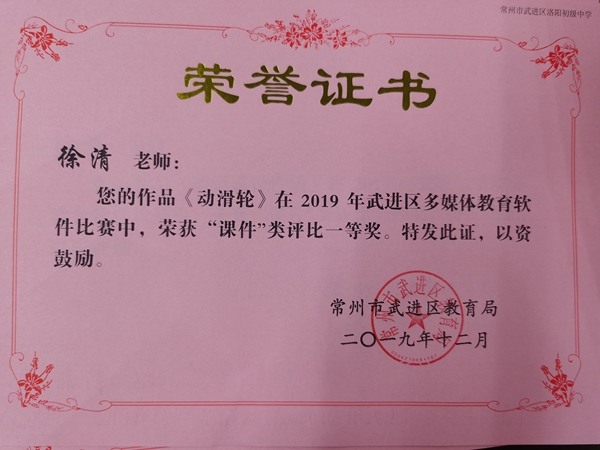 常州市武进区洛阳初级中学
荣誉证书
徐清 老师：
您的作品《动滑轮》在 2019 年武进区多媒体教育软
件比赛中，荣获“课件”类评比一等奖。特发此证，以资
鼓励。
常州市武进区教育局
二〇一九年十二月
常州市武进区教育局